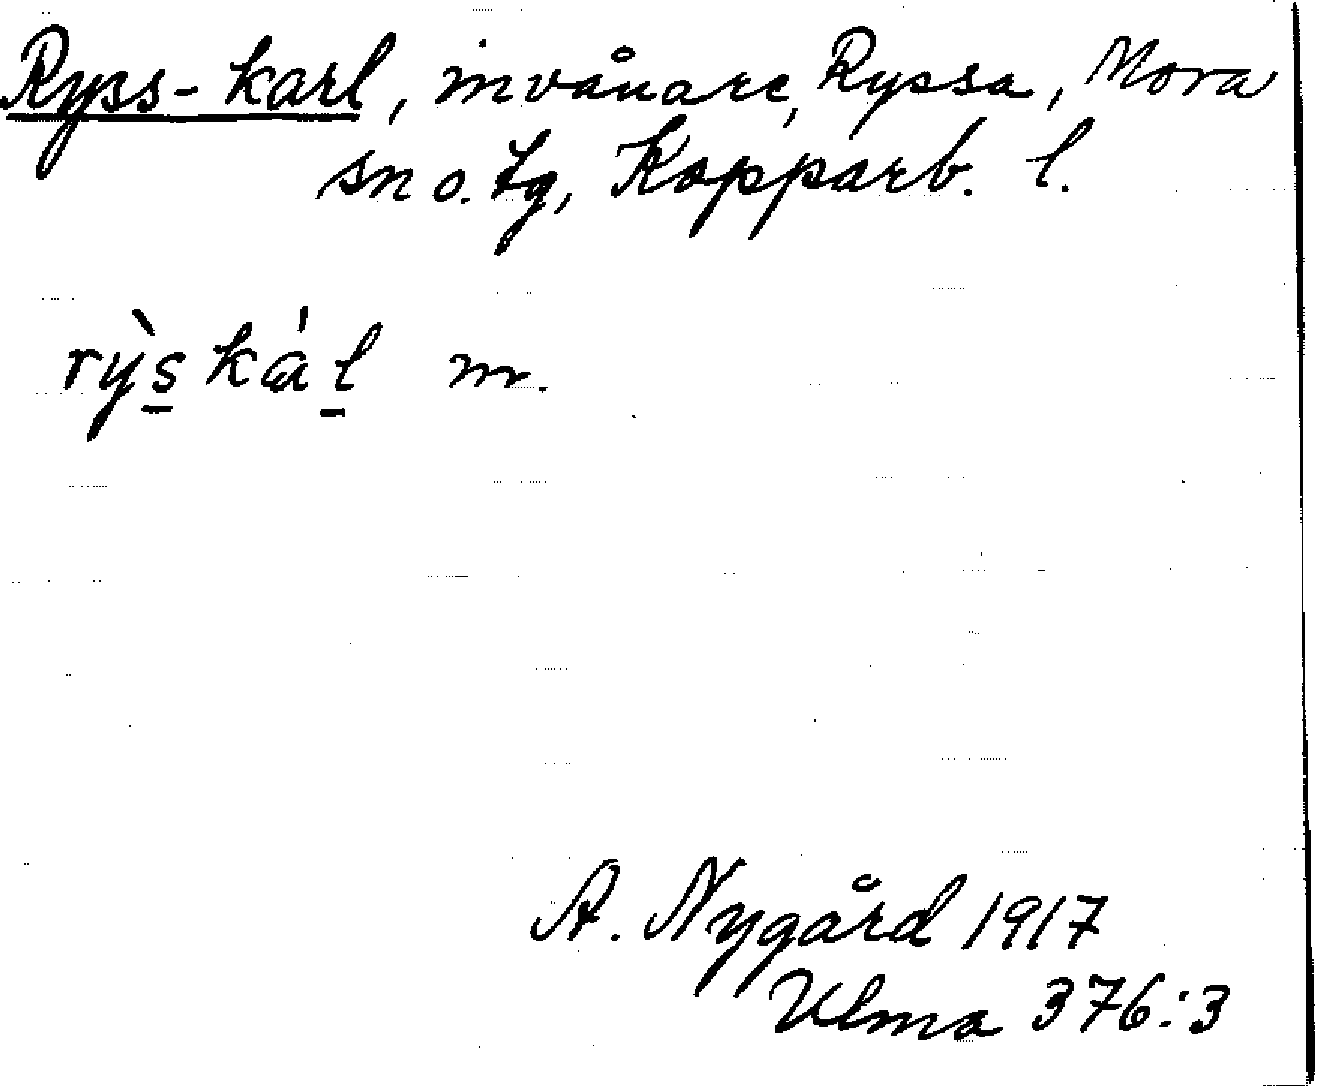 Ryss-karl, invånare, Ryssa, Mora
sn o. tg, Kopparb. l.
rỳs̲ kál̲ m.
A. Nygård 1917
Ulma 376:3